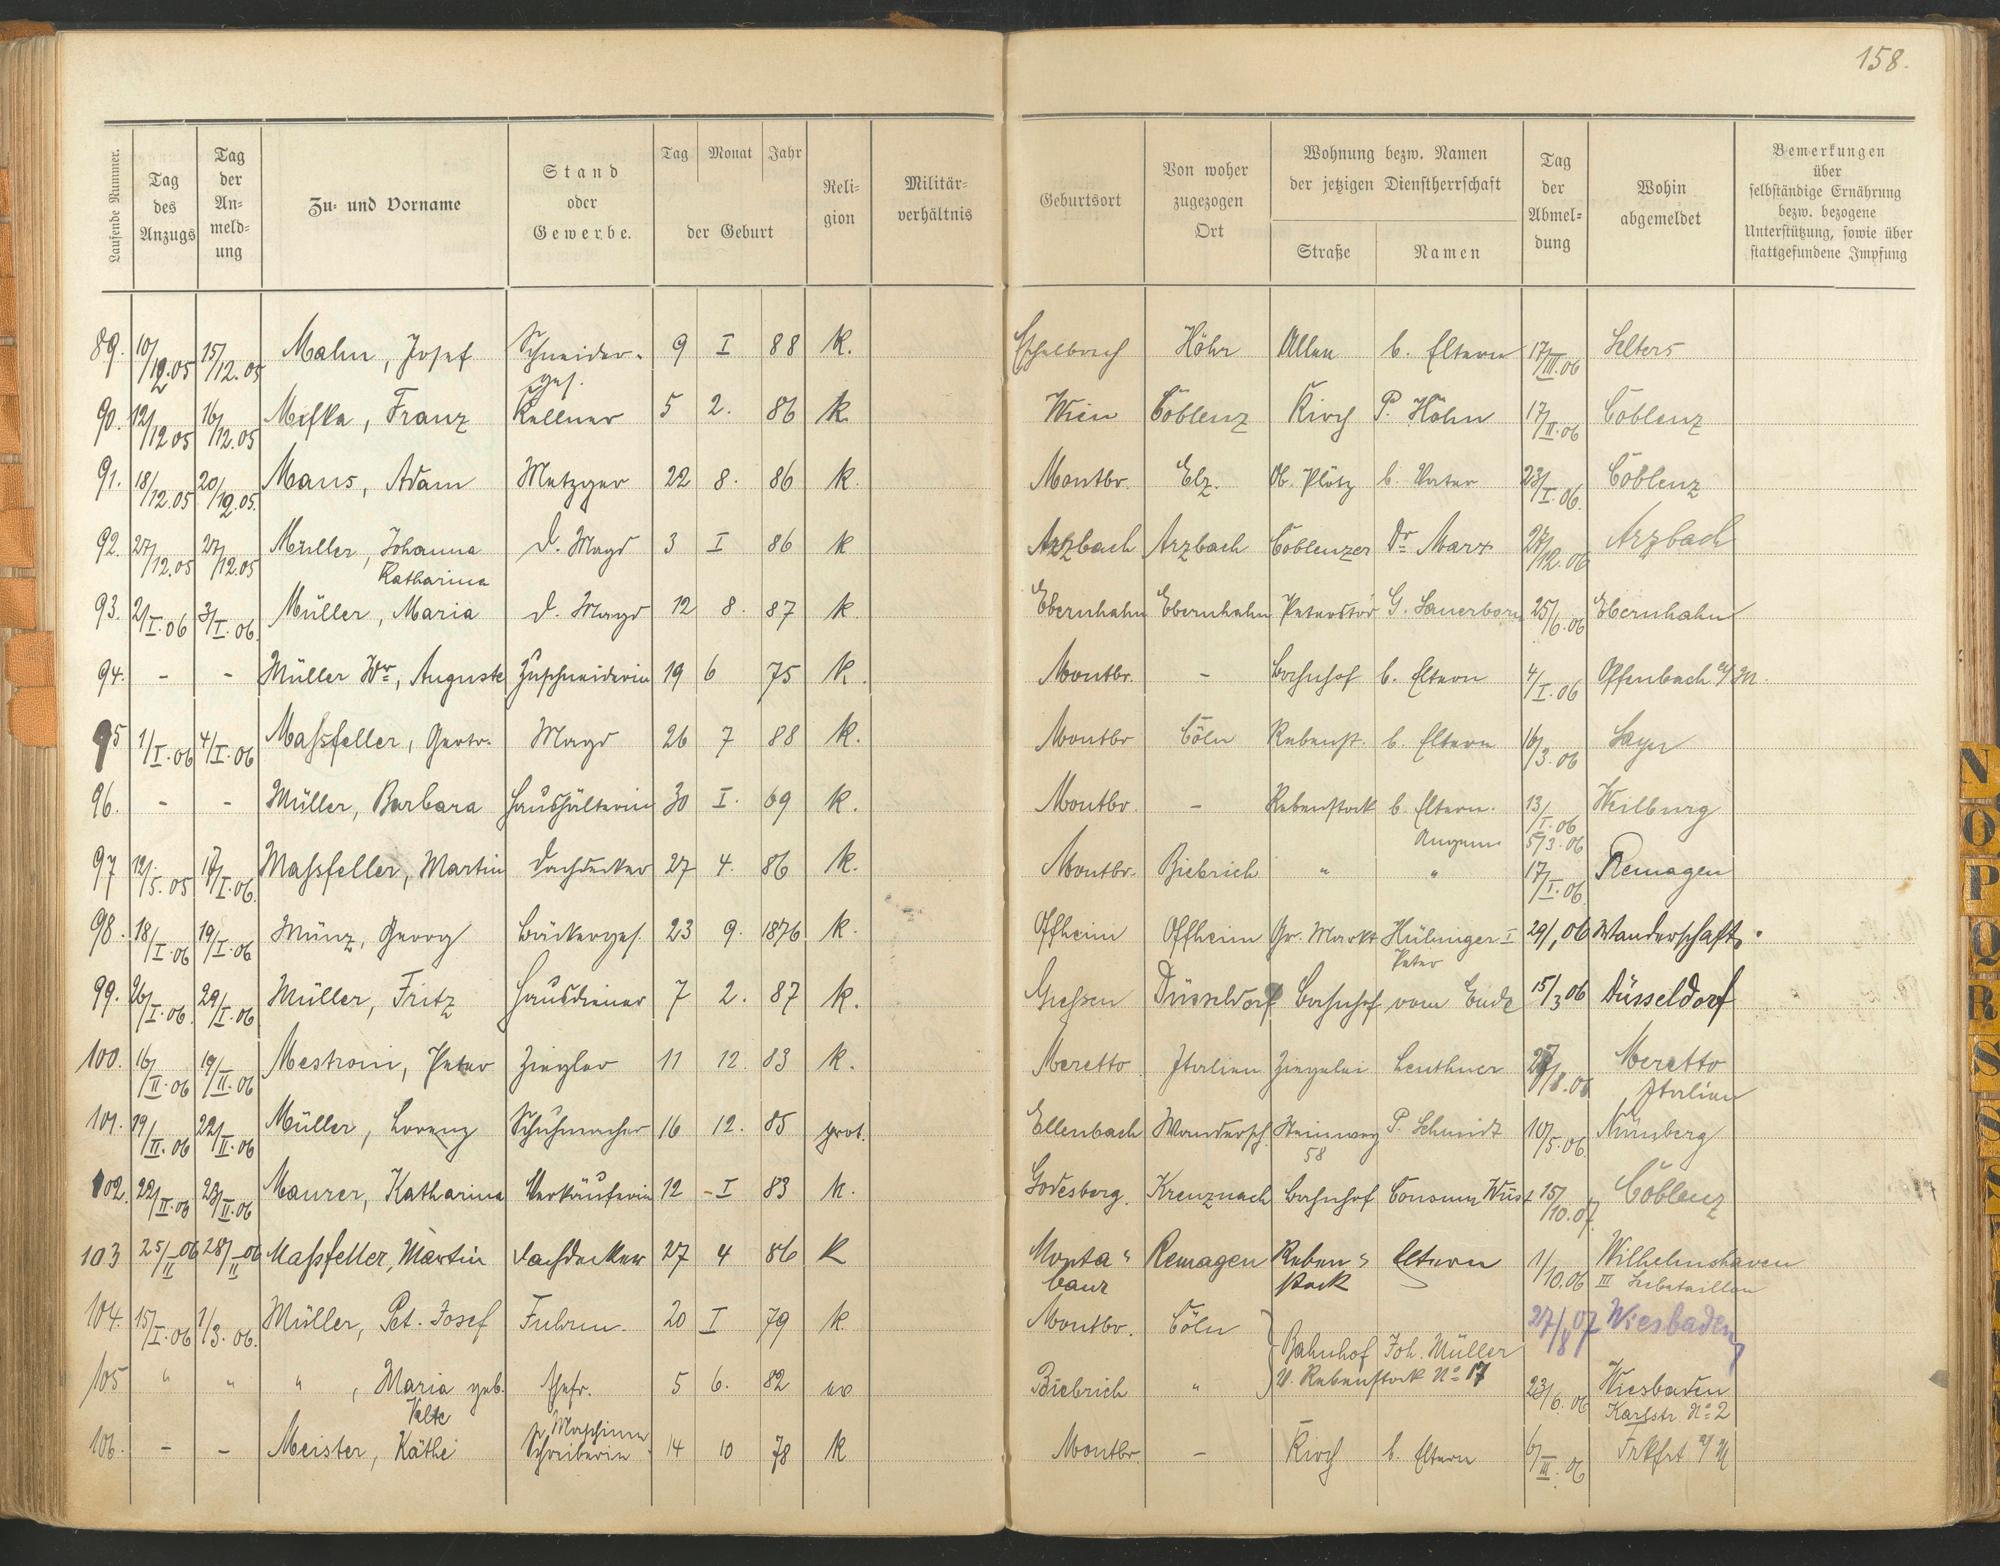 158.
Laufende Nummer.
Tag des Anzugs
Tag der An-meld-ung
Zu- und Vorname
Stand oder Gewerbe.
Tag Monat Jahr
der Geburt
Reli-gion
Militär-verhältnis
Geburtsort
Von woher zugezogen Ort
Wohnung bezw. Namen der jetzigen Dienstherrschaft
Straße Namen
Tag der Abmel-dung
Wohin abgemeldet
Bemerkungen über selbständige Ernährung bezw. bezogene Unterstützung, sowie über stattgefundene Impfung
89. 10/12.05 15/12.05 Mahn, Josef Schneider-ges. 9 I 88 k. Höhr Allee b. Eltern 17/III.06 Selters
90. 12/12.05 16/12.05 Franz Kellner 5 2. 86 k. Wien Coblenz Kirch P. Höhn 17/II.06 Coblenz
91. 18/12.05 20/12.05. Maus, Adam Metzger 22 8. 86 k. Montbr. Elz. Ob. Plötz b. Vater 23/I.06. Coblenz
92. 27/12.05 27/12.05 Müller, Johanna Katharina d. Magd 3 I 86 k Arzbach Arzbach Coblenzer Dr Marx 27/12.06 Arzbach
93. 2/I.06 3/I.06. Müller, Maria d. Magd 12 8. 87 k. Ebernhahn Ebernhahn Peterstor G. Sauerborn 25/6.06 Ebernhahn
94. - - Müller Wr, Auguste Zuschneiderin 19 6 75 k. Montbr. - Bahnhof b. Eltern 4/I.06 Offenbach a/M.
95 1/I.06 4/I.06 Maßfeller, Gertr. Magd 26 7 88 k. Montbr Cöln Rebenst. b. Eltern 16/3.06 Sayn
96. - - Müller, Barbara Haushälterin 30 I. 69 k. Montbr. - Rebenstock b. Eltern. 13/I.06 Weilburg
5/3.06
97 12/5.05 17/I.06. Maßfeller, Martin Dachdecker 27 4. 86 k. Montbr. Biebrich " " 17/I.06. Remagen
98. 18/I.06 19/I.06 Münz, Georg Bäckerges. 23 9. 1876 k. Offheim Offheim Gr. Markt Hübinger I Peter 29/1 06 Wanderschaft.
99. 26/I.06. 29/I.06 Müller, Fritz Hausdiener 7 2. 87 k. Gießen Düsseldorf Bahnhof vom Ende 15/3 06 Düsseldorf
100. 16/II.06 19/II.06 Mestroni, Peter Ziegler 11 12. 83 k. Meretto Italien Ziegelei Leuthner 27/8.06 Meretto Italien
101. 19/II.06 22/II.06 Müller, Lorenz Schuhmacher 16 12. 85 prot. Ellenbach Wandersch. Steinweg 58 P. Schmidt 10/5.06. Nürnberg
102. 22/II.06 23/II.06 Maurer, Katharina Verkäuferin 12 - I 83 k. Godesberg. Kreuznach Bahnhof Consum Wüst 15/10.07. Coblenz
103 25/II 06 28/II 06 Maßfeller, Martin Dachdecker 27 4 86 k Montabaur Remagen Rebenstock Eltern 1/10.06 Wilhelmshaven III Seebataillon
104. 15/I.06 1/3.06. Müller, Pet. Josef Fuhrm. 20 I 79 k. Montbr. Cöln Bahnhof Joh. Müller 27/8 07 Wiesbaden
105 " " " , Maria geb. Velte Ehefr. 5 6. 82 ev Biebrich " U. Rebenstock No 17 23/6.06 Wiesbaden Karlstr. No 2
106. - - Meister, Käthe Maschinenschreiberin 14 10 78 k Montbr. - Kirch b. Eltern 6/III.06 Frkfrt a/M
N
O
P
Q
R
S